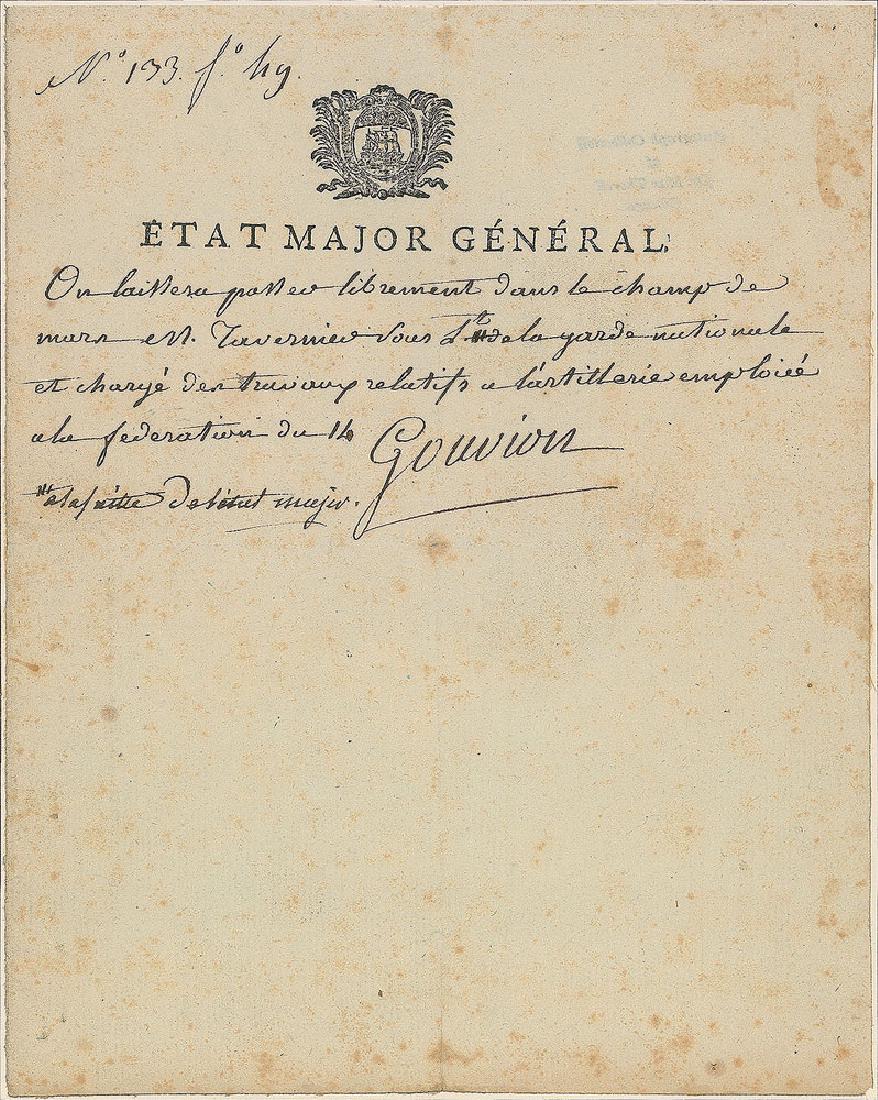 N.° 133. f.° 49.
ÉTAT MAJOR GÉNÉRAL.
On laissera passer librement dans le champ de
mars M. Tavernier Sous Lt de la garde nationale
et chargé des travaux relatifs a l'artillerie emploiée
a la federation du 14 Gouvion
a la suitte de l'etat major.